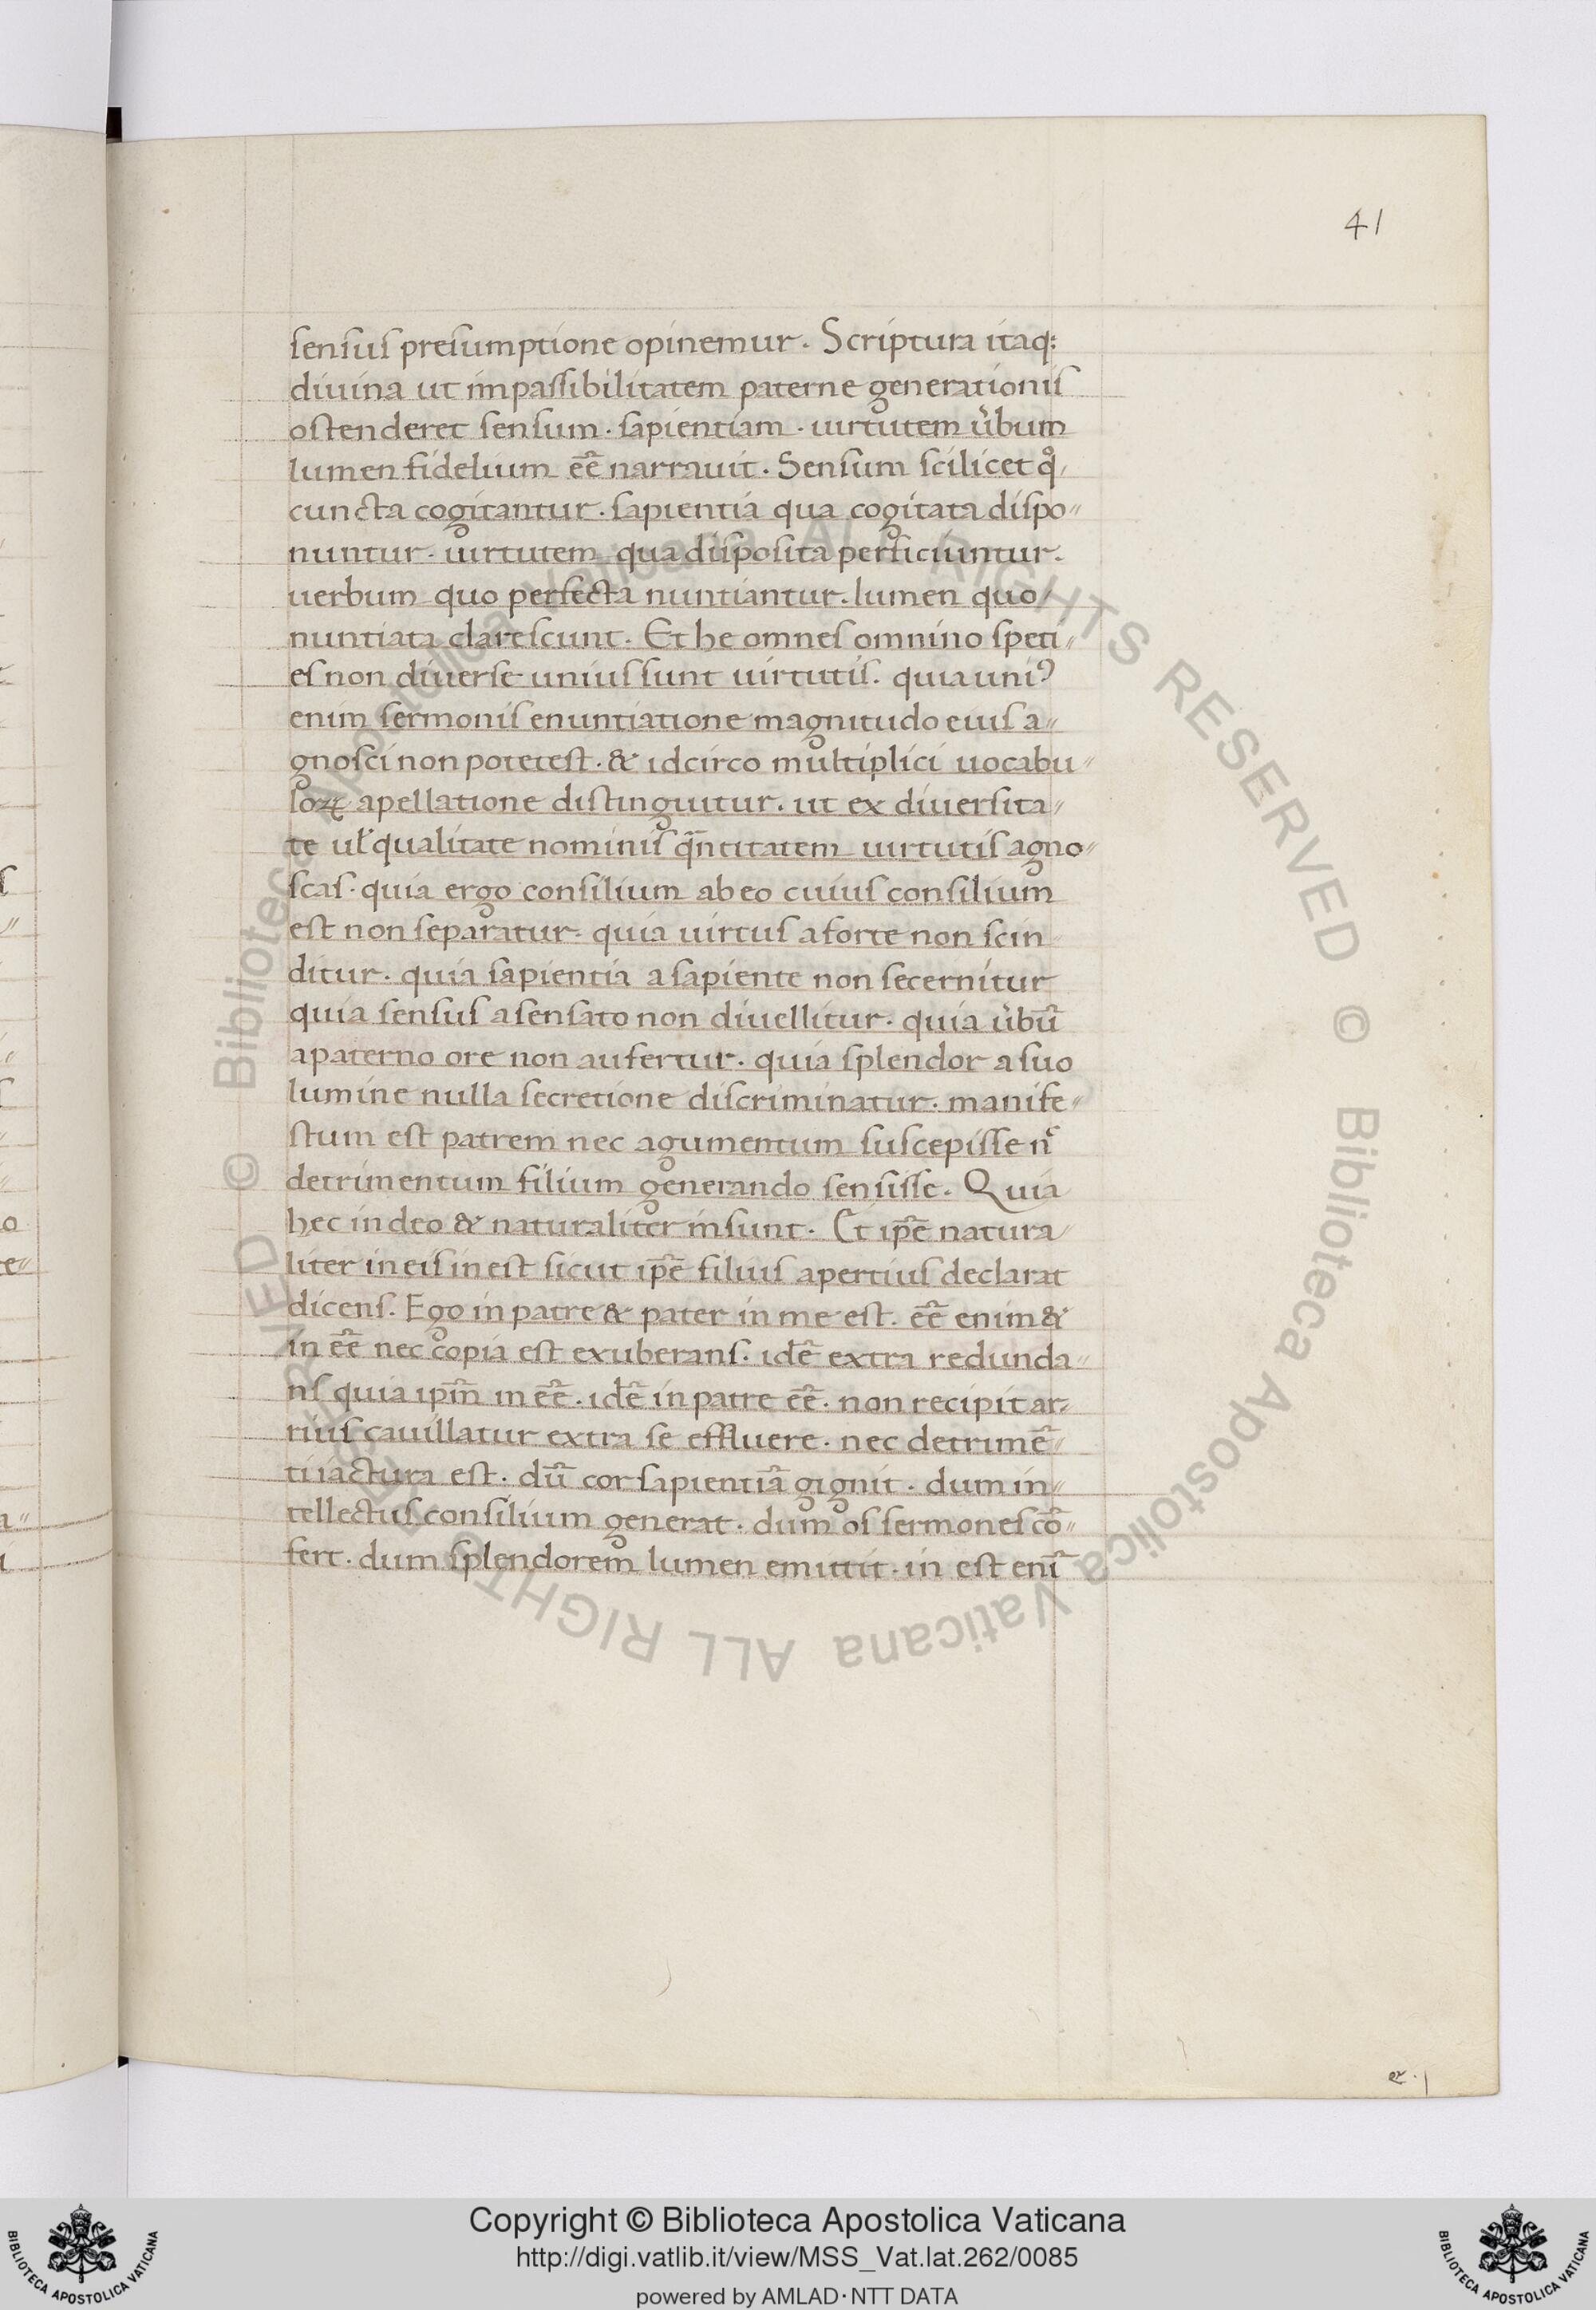 41
sensus presumptione opinemur. Scriptura itaq;
diuina ut impassibilitatem paterne generationis
ostenderet sensum · sapientiam · uirtutem u̓bum
lumen fidelium eē narrauit. Sensum scilicet qͦ
cuncta cogitantur · sapientia qua cogitata dispo〃
nuntur · uirtutem qua disposita perficiuntur.
uerbum quo perfecta nuntiantur. lumen quo
nuntiata clarescunt. Et he omnes omnino speti〃
es non diuerse unius sunt uirtutis. quia uniꝰ
enim sermonis enuntiatione magnitudo eius a〃
gnosci non potetest · & idcirco multiplici uocabu〃
loꝝ apellatione distinguitur. ut ex diuersita〃
te ul̓ qualitate nominis qn̄titatem uirtutis agno〃
scas · quia ergo consilium ab eo cuius consilium
est non separatur · quia uirtus a forte non scin
ditur · quia sapientia a sapiente non secernitur
quia sensus a sensato non diuellitur · quia u̓bū
a paterno ore non aufertur · quia splendor a suo
lumine nulla secretione discriminatur · manife〃
stum est patrem nec agumentum suscepisse nͨ
detrimentum filium generando sensisse. Quia
hec in deo & naturaliter insunt. Et ip̄e natura〃
liter in eis inest sicut ip̄e filius apertius declarat
dicens. Ego in patre & pater in me est. eē enim &
in eē nec copia est exuberans · idē extra redunda〃
ns quia ipm̄ in eē · idē in patre eē · non recipit ar〃
rius cauillatur extra se effluere · nec detrimē〃
ti iactura est · dū cor sapientiā gignit · dum in〃
tellectus consilium generat · dum os sermones cō〃
fert · dum splendorem lumen emittit · in est enī
Copyright © Biblioteca Apostolica Vaticana
http://digi.vatlib.it/view/MSS_Vat.lat.262/0085
powered by AMLAD·NTT DATA
BIBLIOTECA APOSTOLICA VATICANA
BIBLIOTECA APOSTOLICA VATICANA
© Biblioteca Apostolica Vaticana ALL RIGHTS RESERVED © Biblioteca Apostolica Vaticana ALL RIGHTS RESERVED